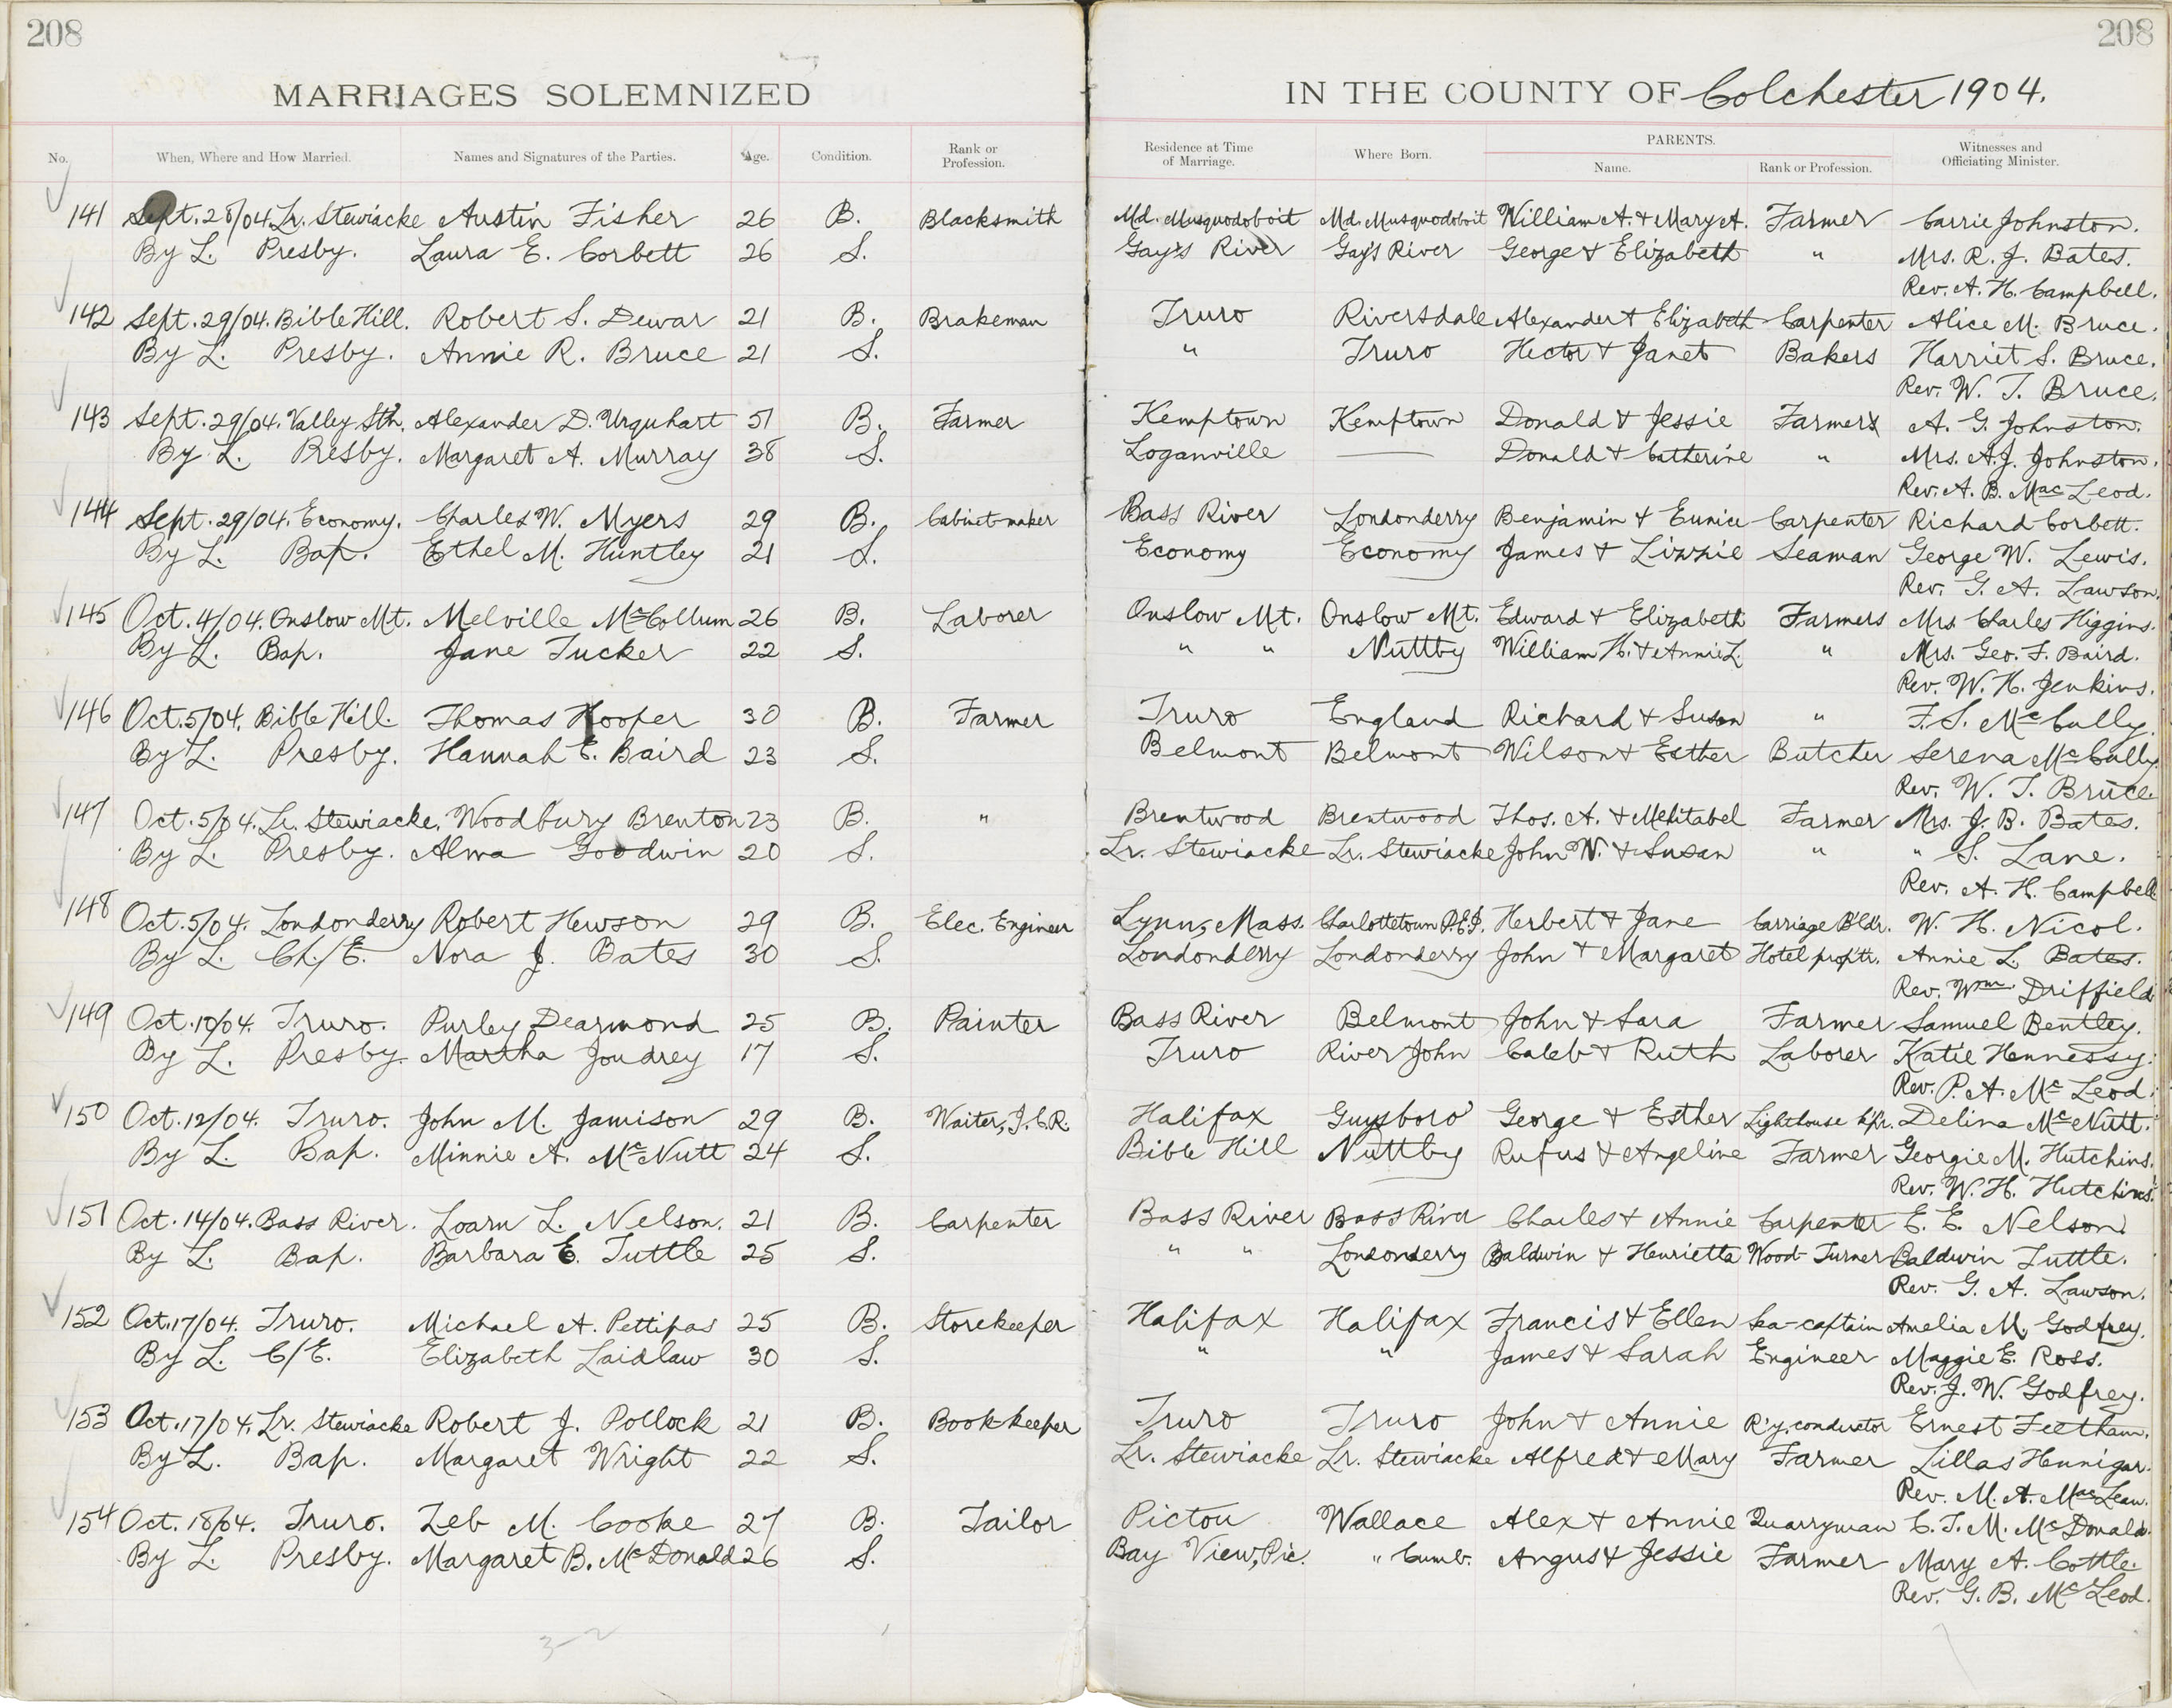 208 208
MARRIAGES SOLEMNIZED IN THE COUNTY OF Colchester 1904.
No. When, Where and How Married. Names and Signatures of the Parties. Age. Condition. Rank or Profession. Residence at Time of Marriage. Where Born. PARENTS. Name. Rank or Profession. Witnesses and Officiating Minister.
141 Sept. 28/04. Lr. Stewiacke Austin Fisher 26 B. Blacksmith Md. Musquodoboit Md. Musquodoboit William A. & Mary A. Farmer Carrie Johnston.
By L. Presby. Laura E. Corbett 26 S. Gay's River Gay's River George & Elizabeth " Mrs. R. J. Bates.
Rev. A. H. Campbell.
142 Sept. 29/04. Bible Hill. Robert S. Dewar 21 B. Brakeman Truro Riversdale Alexander & Elizabeth Carpenter Alice M. Bruce.
By L. Presby. Annie R. Bruce 21 S. " Truro Hector & Janet Bakers Harriet S. Bruce.
Rev. W. T. Bruce.
143 Sept. 29/04. Valley Stn. Alexander D. Urquhart 51 B. Farmer Kemptown Kemptown Donald & Jessie Farmers A. G. Johnston.
By L. Presby. Margaret A. Murray 38 S. Loganville — Donald & Catherine " Mrs. A. J. Johnston.
Rev. A. B. MacLeod.
144 Sept. 29/04. Economy. Charles W. Myers 29 B. Cabinet-maker Bass River Londonderry Benjamin & Eunice Carpenter Richard Corbett.
By L. Bap. Ethel M. Huntley 21 S. Economy Economy James & Lizzie Seaman George W. Lewis.
Rev. G. A. Lawson.
145 Oct. 4/04. Onslow Mt. Melville McCollum 26 B. Laborer Onslow Mt. Onslow Mt. Edward & Elizabeth Farmers Mrs. Charles Higgins.
By L. Bap. Jane Tucker 22 S. " " Nuttby William H. & Annie L. " Mrs. Geo. F. Baird.
Rev. W. H. Jenkins.
146 Oct. 5/04. Bible Hill. Thomas Hooper 30 B. Farmer Truro England Richard & Susan " F. S. McCully.
By L. Presby. Hannah E. Baird 23 S. Belmont Belmont Wilson & Esther Butcher Serena McCully
Rev. W. T. Bruce
147 Oct. 5/04. Lr. Stewiacke. Woodbury Brenton 23 B. " Brentwood Brentwood Thos. A. & Mehitabel Farmer Mrs. J. B. Bates.
By L. Presby. Alma Goodwin 20 S. Lr. Stewiacke Lr. Stewiacke John W. & Susan " " S. Lane.
Rev. A. H. Campbell
148 Oct. 5/04. Londonderry Robert Hewson 29 B. Elec. Engineer Lynn, Mass. Charlottetown P.E.I. Herbert & Jane Carriage B'ldr. W. H. Nicol.
By L. Ch./E. Nora J. Bates 30 S. Londonderry Londonderry John & Margaret Hotel prop'tr. Annie L. Bates.
Rev. Wm. Driffield
149 Oct. 10/04. Truro. Purley Dearmond 25 B. Painter Bass River Belmont John & Sara Farmer Samuel Bentley.
By L. Presby. Martha Joudrey 17 S. Truro River John Caleb & Ruth Laborer Katie Hennessy.
Rev. P. A. McLeod.
150 Oct. 12/04. Truro. John M. Jamison 29 B. Waiter, I.C.R. Halifax Guysboro' George & Esther Lighthouse k'p'r. Delina McNutt.
By L. Bap. Minnie A. McNutt 24 S. Bible Hill Nuttby Rufus & Angeline Farmer Georgie M. Hutchins.
Rev. W. H. Hutchins.
151 Oct. 14/04. Bass River. Loarn L. Nelson. 21 B. Carpenter Bass River Bass River Charles & Annie Carpenter E. E. Nelson.
By L. Bap. Barbara E. Tuttle 25 S. " " Londonderry Baldwin & Henrietta Wood-Turner Baldwin Tuttle.
Rev. G. A. Lawson.
152 Oct. 17/04. Truro. Michael A. Pettipas 25 B. Storekeeper Halifax Halifax Francis & Ellen Sea-captain Amelia M. Godfrey.
By L. C/E. Elizabeth Laidlaw 30 S. " " James & Sarah Engineer Maggie E. Ross.
Rev. J. W. Godfrey.
153 Oct. 17/04. Lr. Stewiacke Robert J. Pollock 21 B. Book-keeper Truro Truro John & Annie R'y. conductor Ernest Feetham.
By L. Bap. Margaret Wright 22 S. Lr. Stewiacke Lr. Stewiacke Alfred & Mary Farmer Lillas Hennigar.
Rev. M. A. MacLean.
154 Oct. 18/04. Truro. Zeb M. Cooke 27 B. Tailor Pictou Wallace Alex & Annie Quarryman C. T. M. McDonald.
By L. Presby. Margaret B. McDonald 26 S. Bay View, Pic. " Cumb. Angus & Jessie Farmer Mary A. Cottle.
Rev. G. B. McLeod.